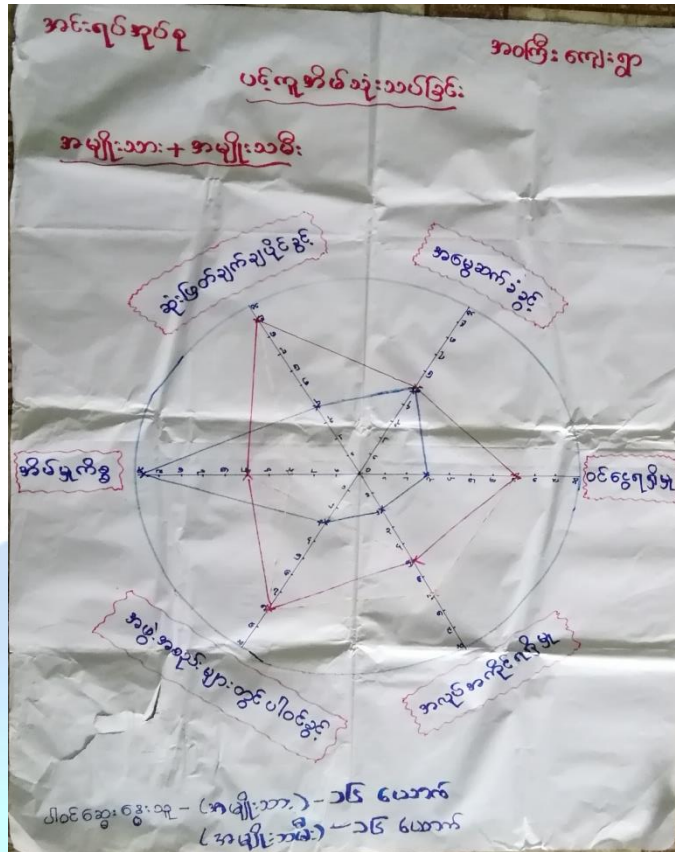 အင်းရပ်အုပ်စု
အဝကြီး ကျေးရွာ
ပင့်ကူအိမ်သုံးသပ်ခြင်း
အမျိုးသား + အမျိုးသမီး
ဆုံးဖြတ်ချက်ချပိုင်ခွင့်
အမွေဆက်ခံခွင့်
အိမ်မှုကိစ္စ
ဝင်ငွေရရှိမှု
အဖွဲ့အစည်းများတွင်ပါဝင်ခွင့်
အလုပ်အကိုင်ရရှိမှု
ပါဝင်ဆွေးနွေးသူ - (အမျိုးသား) - ၁၆ ယောက်
(အမျိုးသမီး) - ၁၆ ယောက်